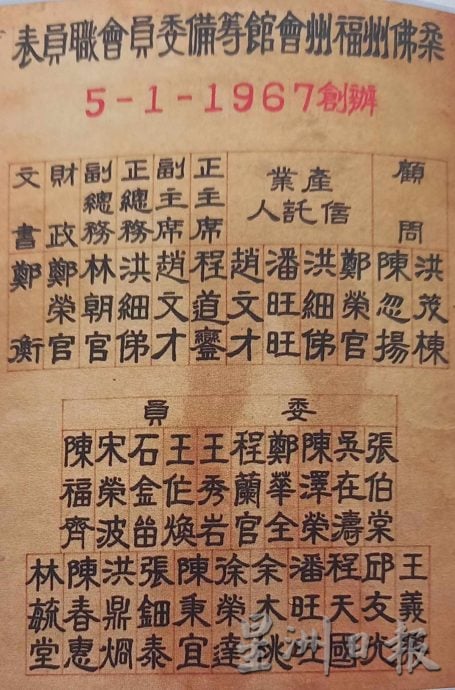 柔佛州福州會館籌備委員會職員表
5-1-1967創辦
顧問
洪茂棟
陳忽揚
產業信託人
鄭榮官
洪細俤
潘旺旺
趙文才
正主席
程道鑾
副主席
趙文才
正總務
洪細俤
副總務
林朝官
財政
鄭榮官
文書
鄭衡
委員
張伯棠
吳在濤
陳澤榮
鄭華全
程蘭官
王秀岩
王煥
石金
宋榮波
陳福齊
王義
邱友
程天國
潘旺
余木
徐榮達
陳秉宜
張鈿泰
洪鼎烱
陳春惠
林毓堂
星洲日报